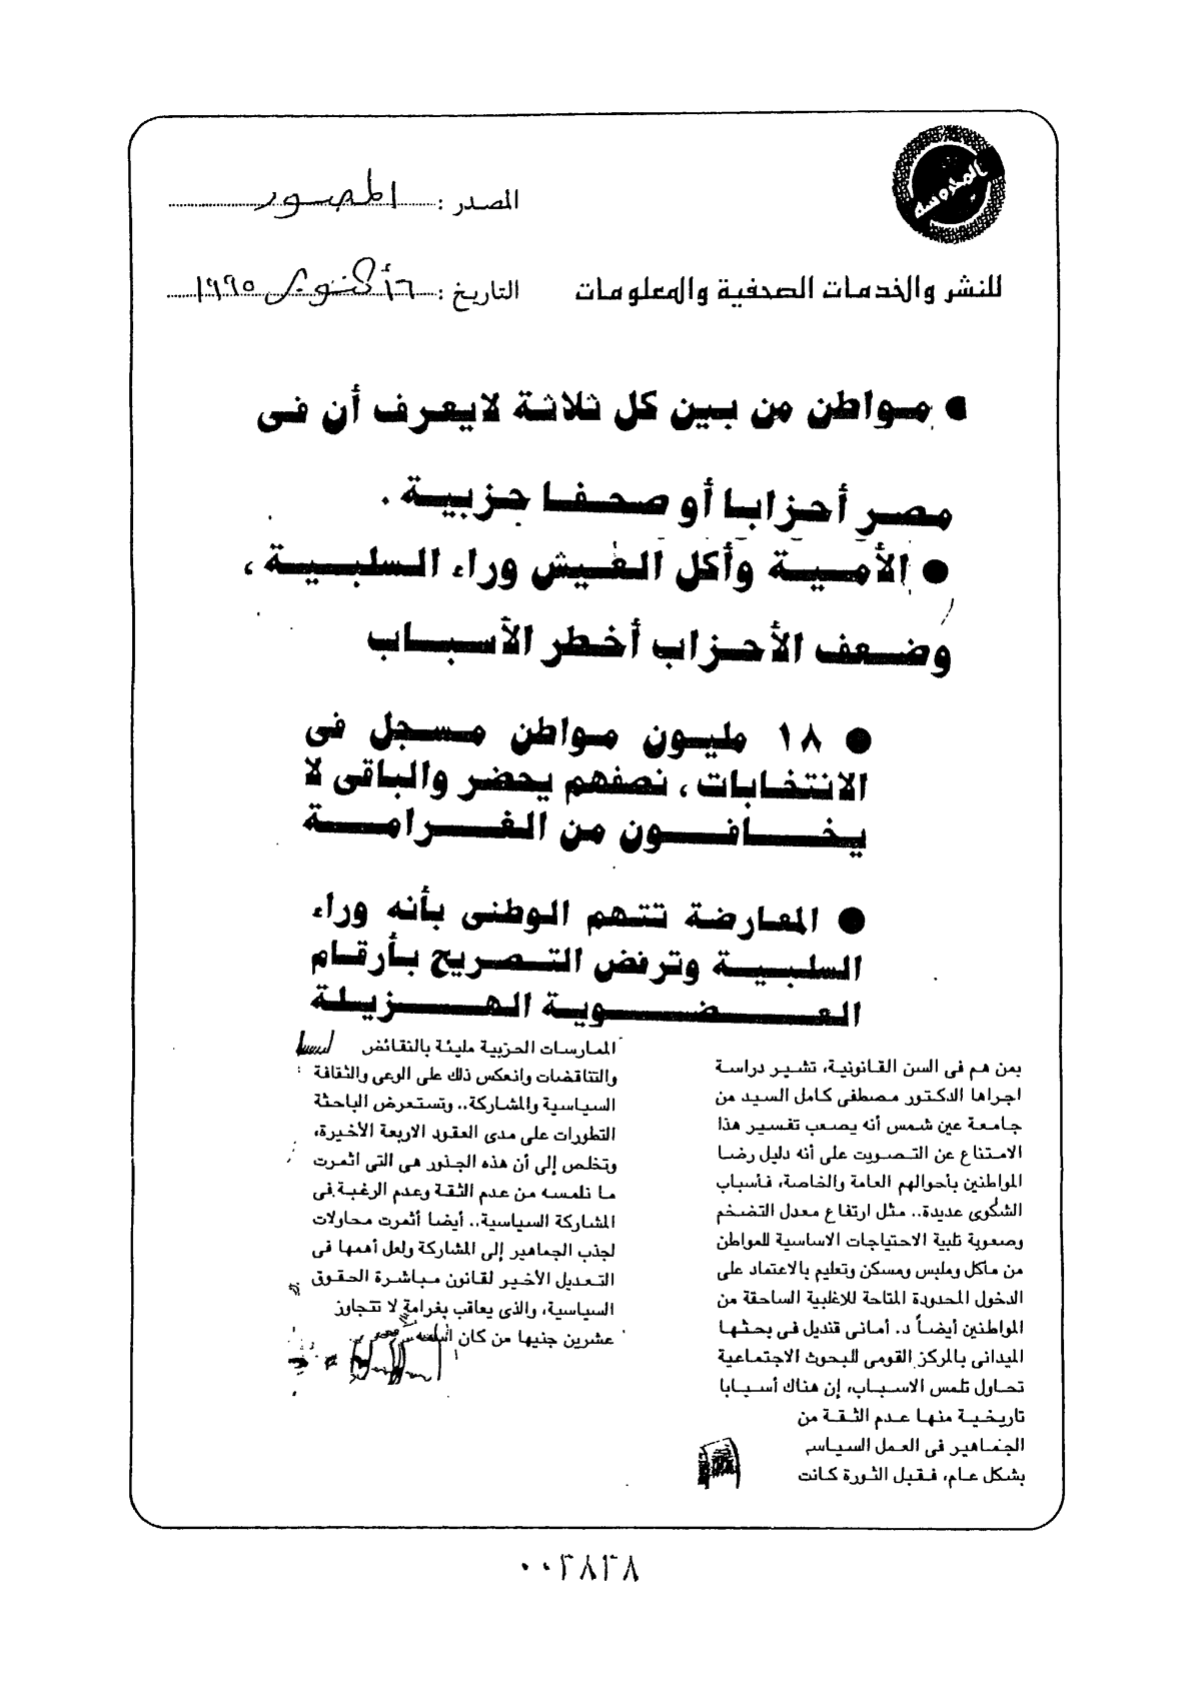 المدرسة
المصدر : المصور
للنشر والخدمات الصحفية والمعلومات
التاريخ : ٦ أكتوبر ١٩٩٥
● مواطن من بين كل ثلاثة لايعرف أن فى
مصر أحزابا أو صحفا حزبية .
● الأمية وأكل العيش وراء السلبية ،
وضعف الأحزاب أخطر الأسباب
● ١٨ مليون مواطن مسجل فى
الانتخابات ، نصفهم يحضر والباقى لا
يخافون من الغرامة
● المعارضة تتهم الوطنى بأنه وراء
السلبية وترفض التصريح بأرقام
العضوية الهزيلة
بمن هم فى السن القانونية، تشير دراسة
اجراها الدكتور مصطفى كامل السيد من
جامعة عين شمس أنه يصعب تفسير هذا
الامتناع عن التصويت على أنه دليل رضا
المواطنين بأحوالهم العامة والخاصة، فأسباب
الشكوى عديدة.. مثل ارتفاع معدل التضخم
وصعوبة تلبية الاحتياجات الاساسية للمواطن
من ماكل وملبس ومسكن وتعليم بالاعتماد على
الدخول المحدودة المتاحة للاغلبية الساحقة من
المواطنين أيضاً د. أمانى قنديل فى بحثها
الميدانى بالمركز القومى للبحوث الاجتماعية
تحاول تلمس الاسباب، إن هناك أسبابا
تاريخية منها عدم الثقة من
الجماهير فى العمل السياسى
بشكل عام، فقبل الثورة كانت
الممارسات الحزبية مليئة بالنقائض
والتناقضات وانعكس ذلك على الوعى والثقافة
السياسية والمشاركة.. وتستعرض الباحثة
التطورات على مدى العقود الاربعة الأخيرة،
وتخلص إلى أن هذه الجذور هى التى اثمرت
ما نلمسه من عدم الثقة وعدم الرغبة فى
المشاركة السياسية.. أيضا أثمرت محاولات
لجذب الجماهير إلى المشاركة ولعل أهمها فى
التعديل الأخير لقانون مباشرة الحقوق
السياسية، والذى يعاقب بغرامة لا تتجاوز
عشرين جنيها من كان
٠٠٢٨٢٨